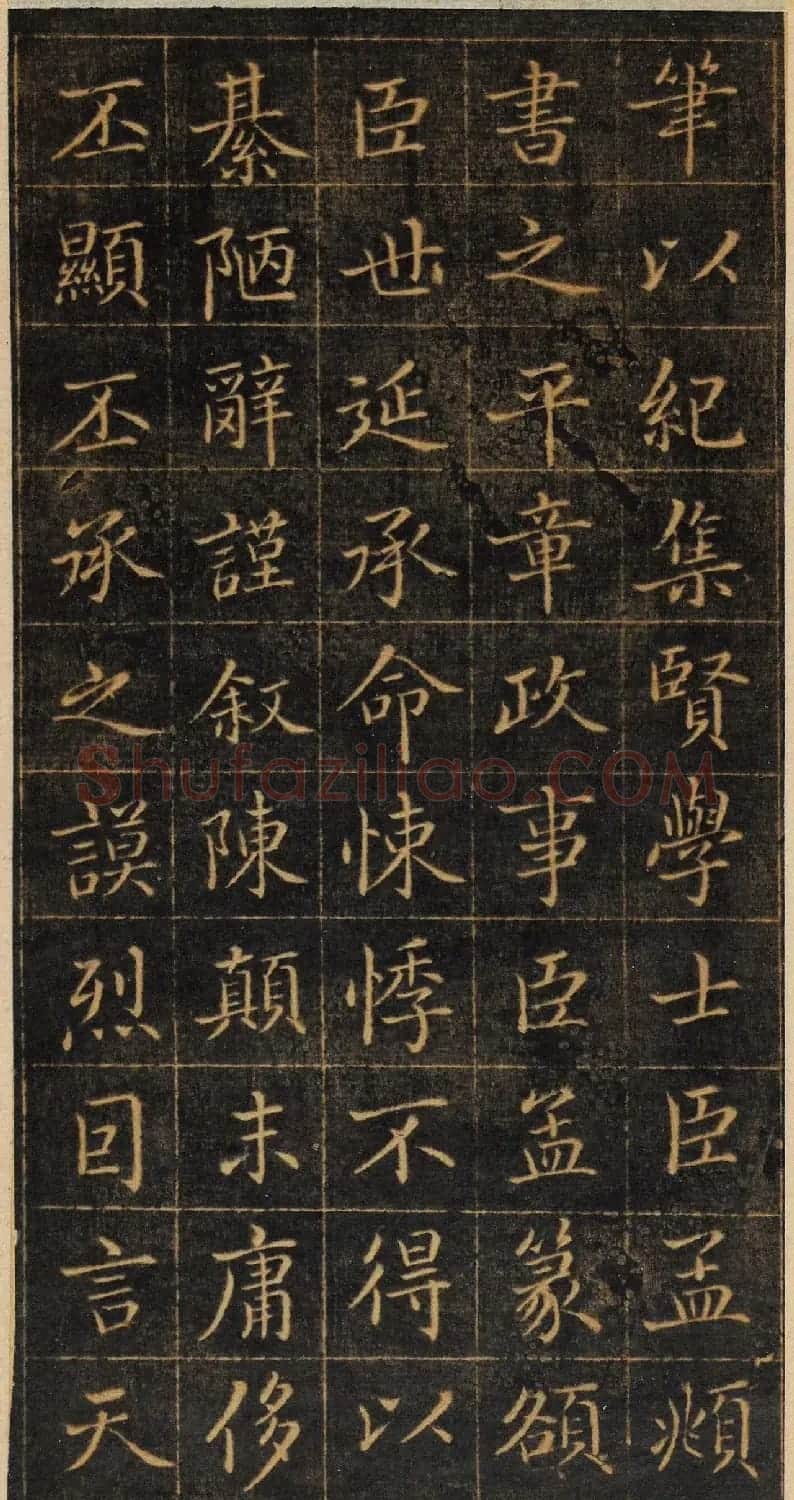 筆以紀集賢學士臣孟頫
書之平章政事臣孟篆額
臣世延承命悚悸不得以
綦陋辭謹敘陳顛末庸侈
丕顯丕承之謨烈因言天
Shufaziliao.COM